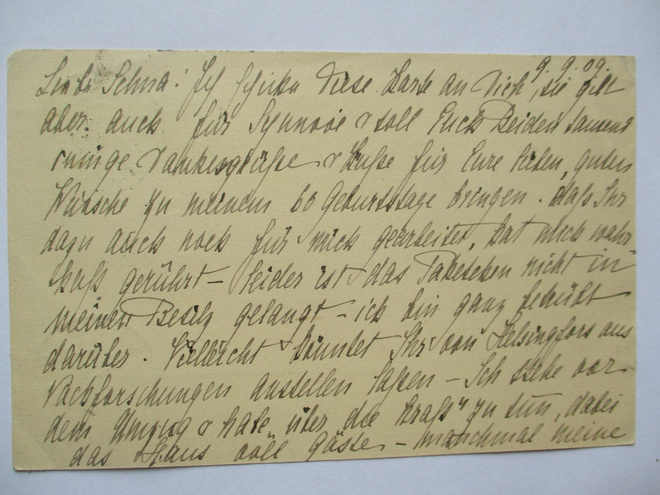 9.9.09.
Liebe Selma! Ich schicke diese Karte an Dich, sie gilt
aber auch für Synnove u soll Euch Beiden tausend
innige Dankesgrüße u Küße für Eure lieben, guten
Wünsche zu meinem 60 Geburtstage bringen. Daß Ihr
dazu auch noch für mich gearbeitet, hat mich wahr-
haft gerührt – leider ist das Paketchen nicht in
meinen Besitz gelangt – ich bin ganz betrübt
darüber. Vielleicht könntet Ihr von Helsingfors aus
Nachforschungen anstellen laßen – Ich stehe vor
dem Umzug u habe "über die Kraft" zu tun, dabei
das Haus voll Gäste – manchmal meine